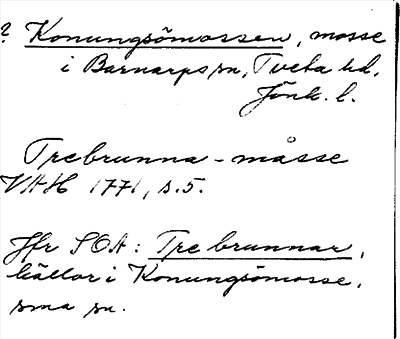 ? Konungsömossen, mosse
i Barnarps sn, Tveta hd,
Jönk. l.
Trebrunna-måsse
VAH 1771, s. 5.
Jfr SOA: Tre brunnar,
källor i Konungsömosse,
sma sn.